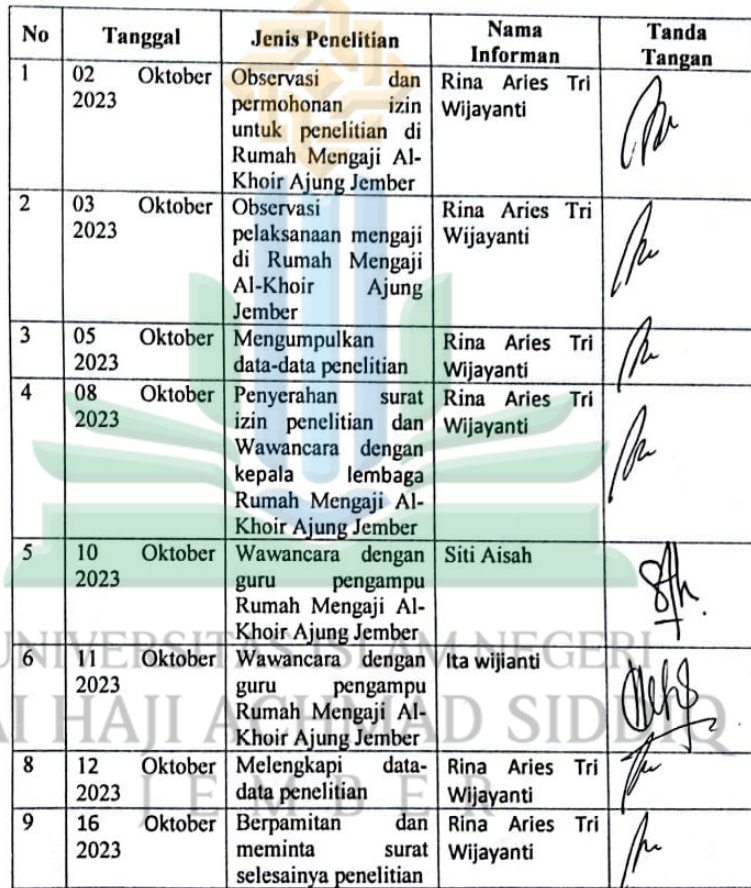 No Tanggal Jenis Penelitian Nama Informan Tanda Tangan
1 02 Oktober 2023 Observasi dan permohonan izin untuk penelitian di Rumah Mengaji Al-Khoir Ajung Jember Rina Aries Tri Wijayanti
2 03 Oktober 2023 Observasi pelaksanaan mengaji di Rumah Mengaji Al-Khoir Ajung Jember Rina Aries Tri Wijayanti
3 05 Oktober 2023 Mengumpulkan data-data penelitian Rina Aries Tri Wijayanti
4 08 Oktober 2023 Penyerahan surat izin penelitian dan Wawancara dengan kepala lembaga Rumah Mengaji Al-Khoir Ajung Jember Rina Aries Tri Wijayanti
5 10 Oktober 2023 Wawancara dengan guru pengampu Rumah Mengaji Al-Khoir Ajung Jember Siti Aisah
6 11 Oktober 2023 Wawancara dengan guru pengampu Rumah Mengaji Al-Khoir Ajung Jember Ita wijianti
8 12 Oktober 2023 Melengkapi data-data penelitian Rina Aries Tri Wijayanti
9 16 Oktober 2023 Berpamitan dan meminta surat selesainya penelitian Rina Aries Tri Wijayanti
UNIVERSITAS ISLAM NEGERI
AI HAJI ACHMAD SIDDIQ
JEMBER